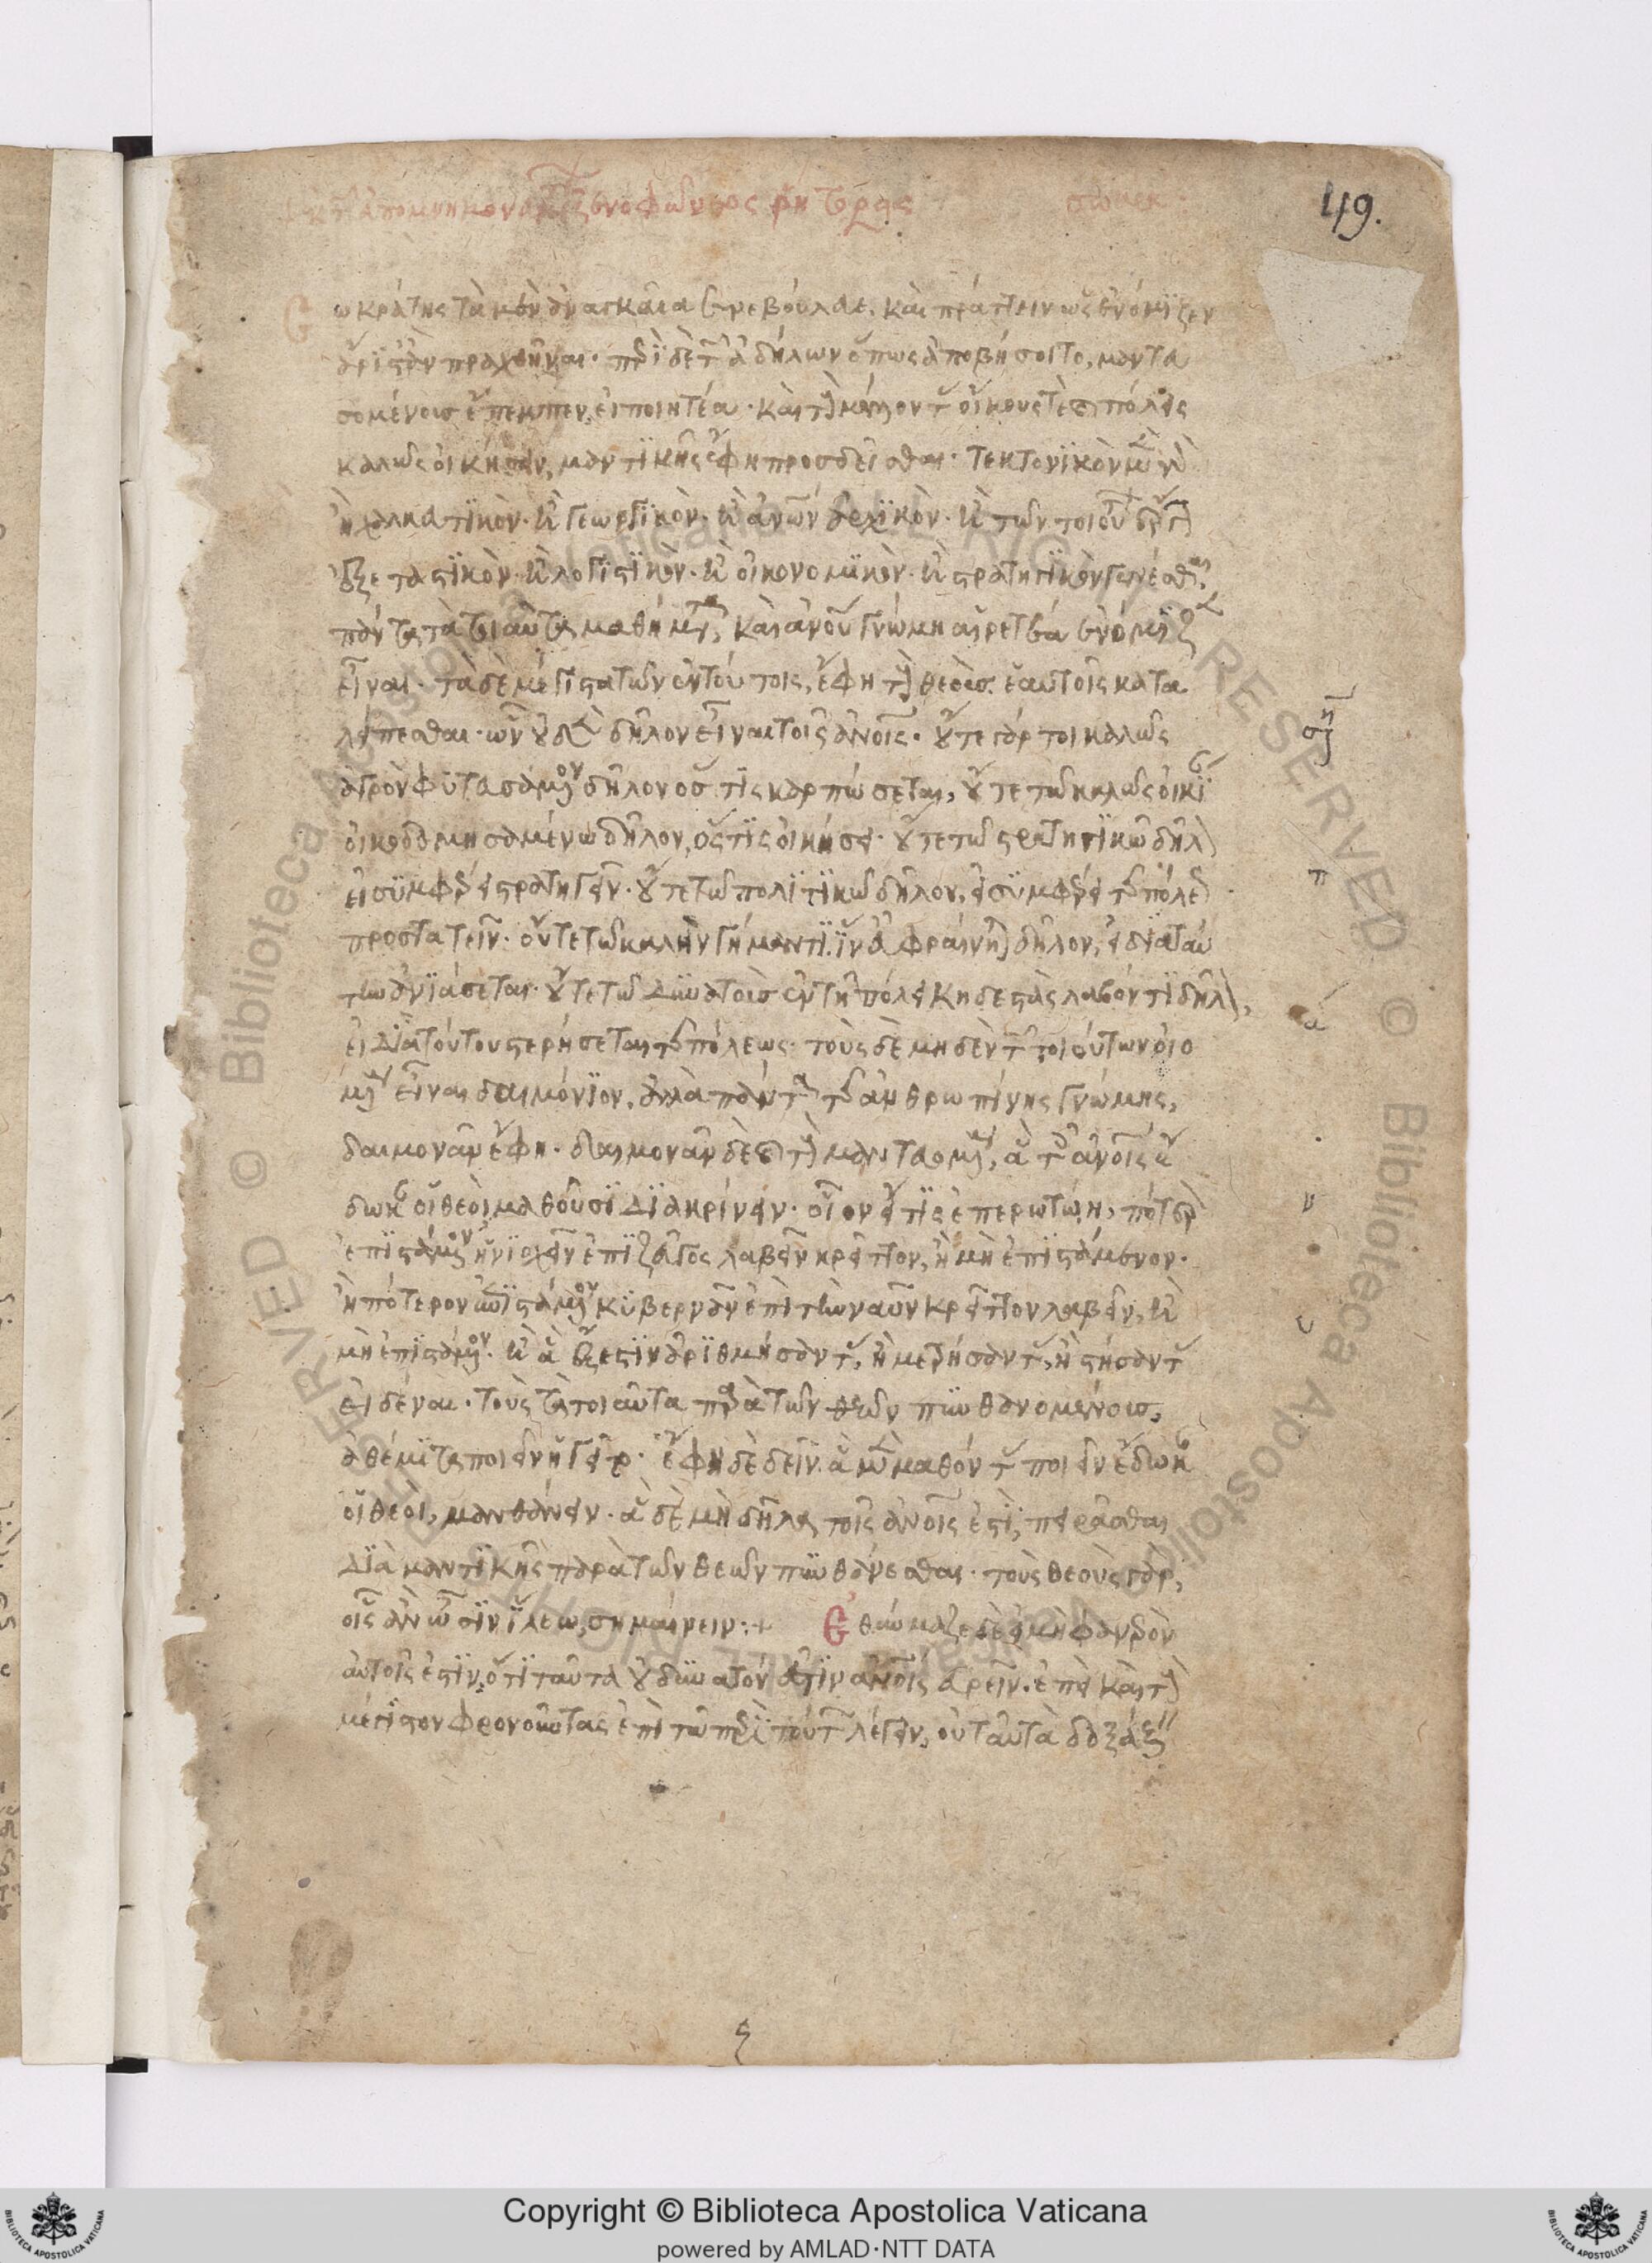 ἐκ τῶν ἀπομνημονευμάτων ξενοφῶντος ῥήτορος
49.
Σωκράτης τὰ μὲν ἀναγκαῖα συνεβούλευε. καὶ πράττειν ὡς ἐνόμιζεν
ἄριστ' ἂν πραχθῆναι· περὶ δὲ τῶν ἀδήλων ὅπως ἀποβήσοιτο, μαντευ
σομένους ἔπεμπεν, εἰ ποιητέα· καὶ τοὺς μέλλοντας οἴκους τὲ καὶ πόλεις
καλῶς οἰκήσειν, μαντικῆς ἔφη προσδεῖσθαι· τεκτονικὸν μὲν γὰρ
ἢ χαλκευτικὸν· ἢ γεωργικὸν· ἢ ἀνθρώπων ἀρχικὸν· ἢ τῶν τοιούτων ἔργων
ἐξεταστικὸν· ἢ λογιστικὸν· ἢ οἰκονομικὸν· ἢ στρατηγικὸν γενέσθαι,
πάντα τὰ τοιαῦτα μαθήματα, καὶ ἀνθρώπου γνώμη αἱρετέα ἐνόμιζεν
εἶναι· τὰ δὲ μέγιστα τῶν ἐν τούτοις, ἔφη τοὺς θεοὺς ἑαυτοῖς κατα
λείπεσθαι· ὧν οὐδὲν δῆλον εἶναι τοῖς ἀνθρώποις· οὔτε γάρ τοι καλῶς
ἀγρὸν φυτευσάμενον δῆλον ὅς τις καρπώσεται, οὔτε τῶ καλῶς οἰκίαν
οἰκοδομησαμένω δῆλον, ὅς τις οἰκήσει· οὔτε τῶ στρατηγικῶ δῆλον
εἰ συμφέρει στρατηγεῖν· οὔτε τῶ πολιτικῶ δῆλον, εἰ συμφέρει τῆς πόλεως
προστατεῖν· οὔτε τῶ καλὴν γήμαντι ἵν' εὐφραίνηται δῆλον, εἰ διὰ ταύ
την ἀνιάσεται· οὔτε τῶ δυνατοὺς ἐν τῆ πόλει κηδεστὰς λαβόντι δῆλον,
εἰ διὰ τούτους στερήσεται τῆς πόλεως· τοὺς δὲ μηδὲν τῶν τοιούτων οἰο
μένους εἶναι δαιμόνιον, ἀλλὰ πάντα τῆς ἀνθρωπίνης γνώμης,
δαιμονᾶν ἔφη· δαιμονᾶν δὲ καὶ τοὺς μαντευομένους, ἃ τοῖς ἀνθρώποις ἔ
δωκαν οἱ θεοὶ μαθοῦσι διακρίνειν· οἷον εἴ τις ἐπερωτώη, πότερον
ἐπιστάμενον ἡνιοχεῖν ἐπὶ ζεῦγος λαβεῖν κρεῖττον, ἢ μὴ ἐπιστάμενον·
ἢ πότερον ἐπιστάμενον κυβερνᾶν ἐπὶ τὴν ναῦν κρεῖττον λαβεῖν, ἢ
μὴ ἐπιστάμενον· ἢ ἃ ἔξεστιν ἀριθμήσαντας, ἢ μετρήσαντας, ἢ στήσαντας
εἰδέναι· τοὺς τὰ τοιαῦτα παρὰ τῶν θεῶν πυνθανομένους,
ἀθέμιτα ποιεῖν ἡγεῖτο· ἔφη δὲ δεῖν ἃ μὲν μαθόντας ποιεῖν ἔδωκαν
οἱ θεοὶ, μανθάνειν· ἃ δὲ μὴ δῆλα τοῖς ἀνθρώποις ἐστὶ, πειρᾶσθαι
διὰ μαντικῆς παρὰ τῶν θεῶν πυνθάνεσθαι· τοὺς θεοὺς γὰρ,
οἷς ἂν ὦσιν ἵλεω, σημαίνειν:+ Ἐθαύμαζε δὲ εἰ μὴ φανερὸν
αὐτοῖς ἐστὶν, ὅτι ταῦτα οὐ δυνατόν ἐστιν ἀνθρώποις εὑρεῖν. ἐπεὶ καὶ τοὺς
μέγιστον φρονοῦντας ἐπὶ τῶ περὶ τούτων λέγειν, οὐ ταὐτὰ δοξάζειν